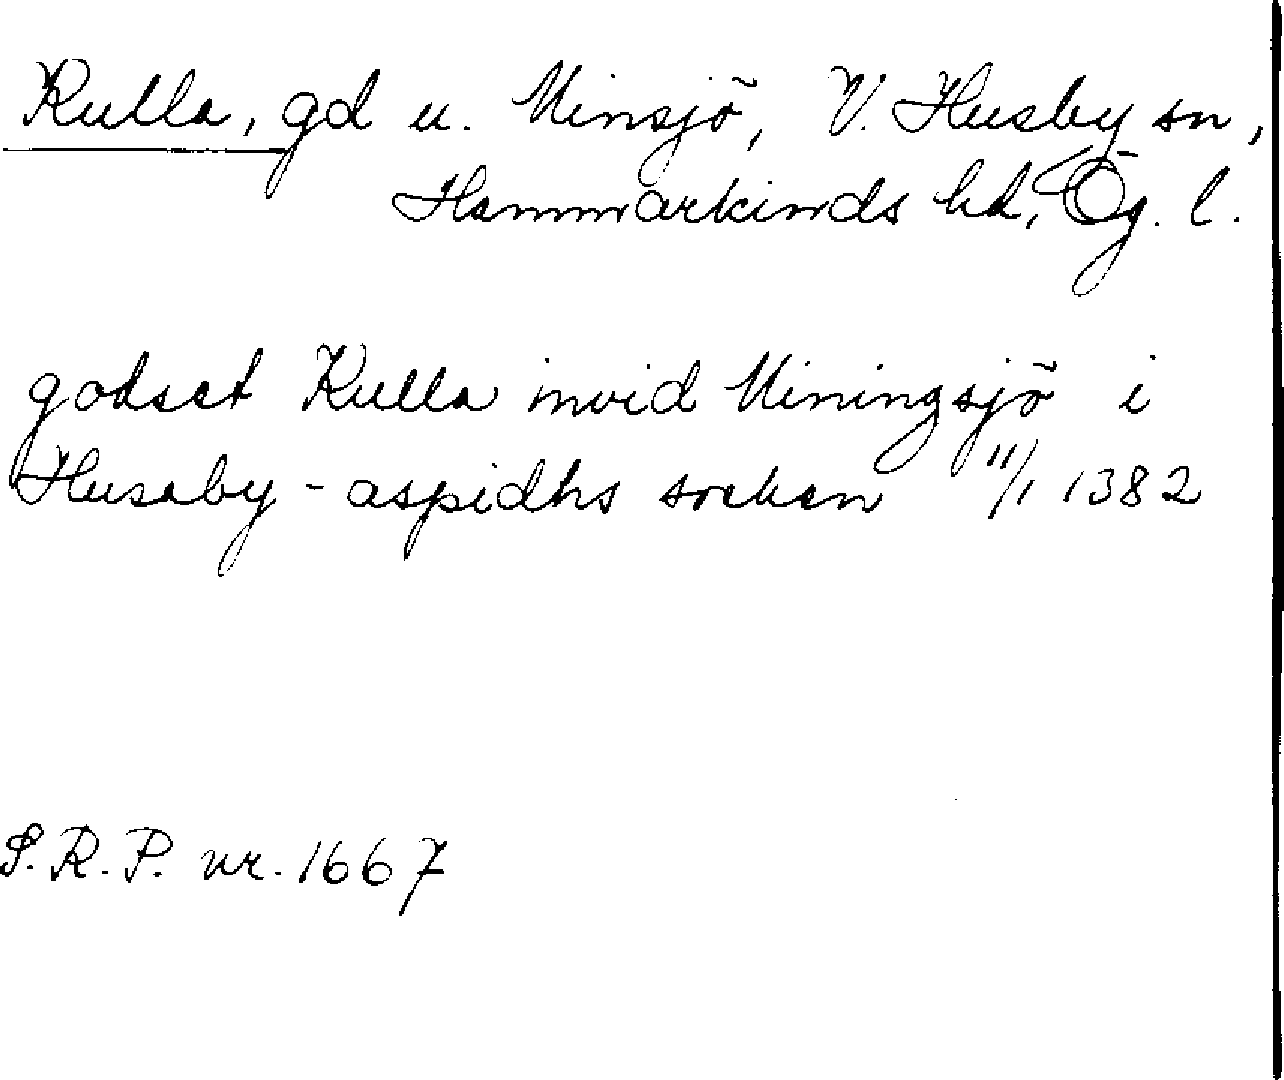 Kulla, gd u. Minsjö, V. Husby sn,
Hammarkinds hd, Ög. l.
godset Kulla invid Miningsjö i
Husaby-aspidhs socken 11/1 1382
S.R.P. nr. 1667